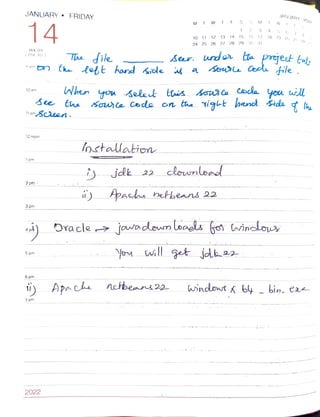 JANUARY • FRIDAY
14
M T W T F S S M T W T F S S
10 11 12 13 14 15 16
24 25 26 27 28 29 30 31
The file ______ seen under the project tab
on the left hand side is a source code file.
When you select this source code you will
see the source code on the right hand side of the
screen.
12 noon
Installation
1 pm
i) jdk 22 download
2 pm
ii) Apache netbeans 22
3 pm
i) Oracle → java downloads for windows
5 pm
You will get jdk 22
6 pm
ii) Apache netbeans 22 windows x 64 - bin. exe
7 pm
2022